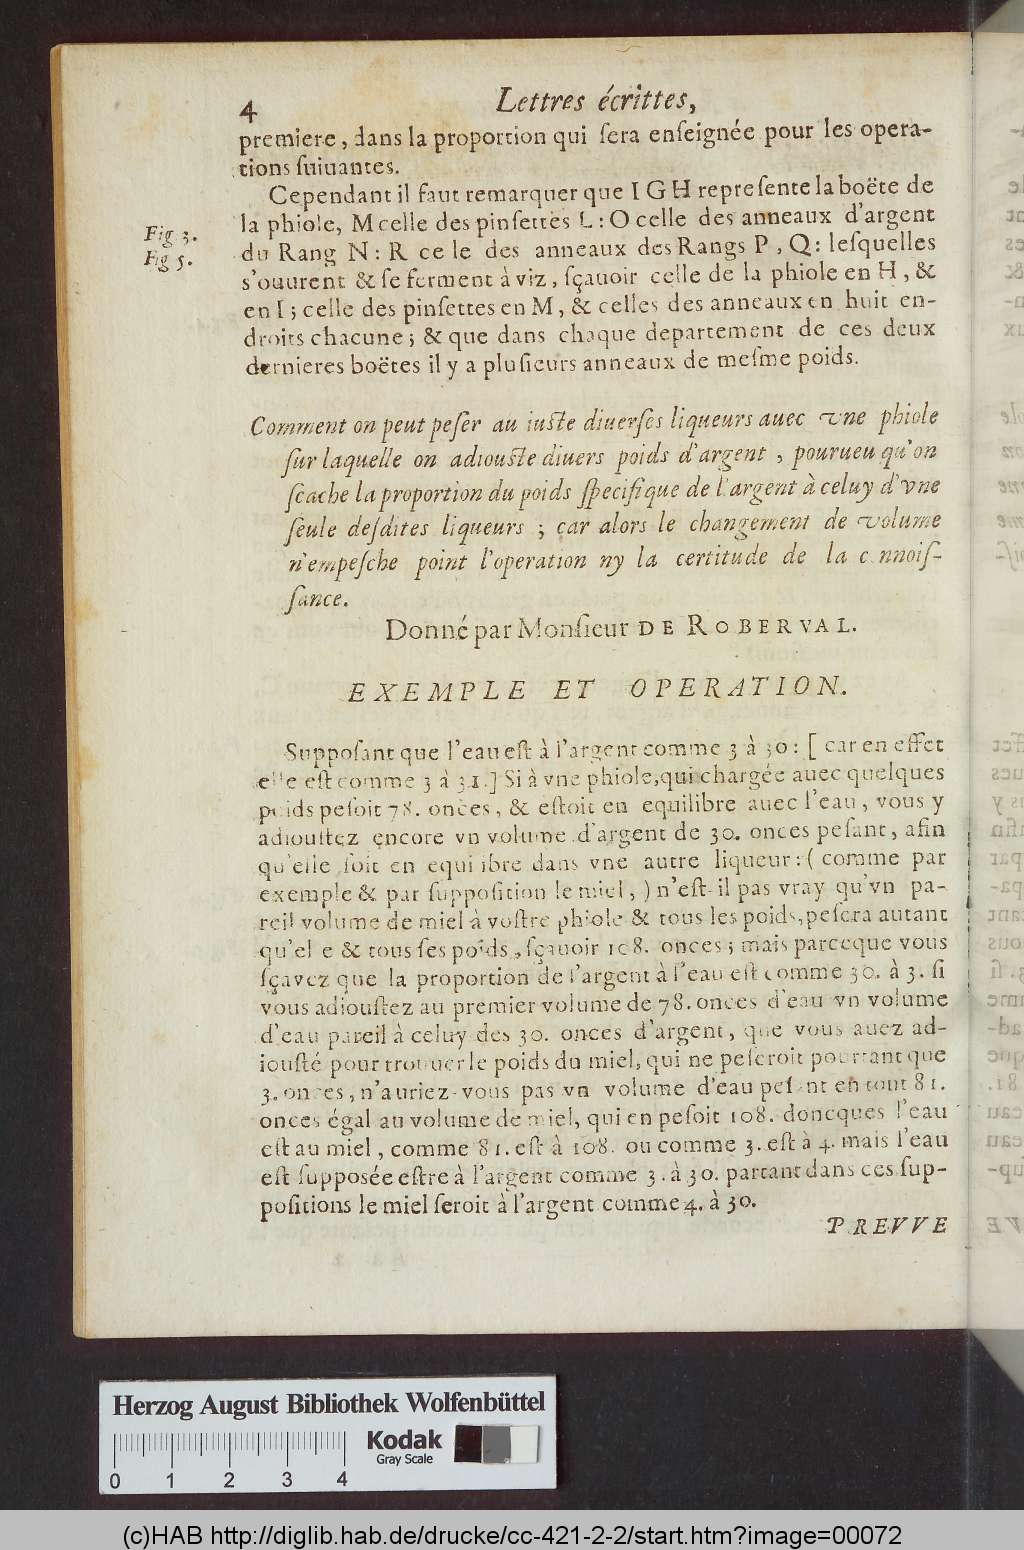 4 Lettres écrittes,
premiere, dans la proportion qui ſera enſeignée pour les opera-
tions ſuiuantes.
Cependant il faut remarquer que I G H repreſente la boëte de
la phiole, M celle des pinſettes L : O celle des anneaux d'argent
Fig 3.
du Rang N : R ce le des anneaux des Rangs P, Q : leſquelles
Fig 5.
s'ouurent & ſe ferment à viz, ſçauoir celle de la phiole en H, &
en I ; celle des pinſettes en M, & celles des anneaux en huit en-
droits chacune ; & que dans chaque departement de ces deux
dernieres boëtes il y a pluſieurs anneaux de meſme poids.
Comment on peut peſer au iuſte diuerſes liqueurs auec vne phiole
ſur laquelle on adiouſte diuers poids d'argent, pourueu qu'on
ſcache la proportion du poids ſpecifique de l'argent à celuy d'vne
ſeule deſdites liqueurs ; car alors le changement de volume
n'empeſche point l'operation ny la certitude de la c nnoiſ-
ſance.
Donné par Monſieur DE ROBERVAL.
EXEMPLE ET OPERATION.
Suppoſant que l'eau eſt à l'argent comme 3 à 30 : [ car en effet
elle eſt comme 3 à 31.] Si à vne phiole, qui chargée auec quelques
poids peſoit 78. onces, & eſtoit en equilibre auec l'eau, vous y
adiouſtez encore vn volume d'argent de 30. onces peſant, afin
qu'elle ſoit en equi ibre dans vne autre liqueur : ( comme par
exemple & par ſuppoſition le miel, ) n'eſt-il pas vray qu'vn pa-
reil volume de miel à voſtre phiole & tous les poids, peſera autant
qu'el e & tous ſes poids, ſçauoir 108. onces ; mais parceque vous
ſçavez que la proportion de l'argent à l'eau eſt comme 30. à 3. ſi
vous adiouſtez au premier volume de 78. onces d'eau vn volume
d'eau pareil à celuy des 30. onces d'argent, que vous auez ad-
iouſté pour trouuer le poids du miel, qui ne peſeroit pourtant que
3. onces, n'auriez-vous pas vn volume d'eau peſant en tout 81.
onces égal au volume de miel, qui en peſoit 108. doncques l'eau
eſt au miel, comme 81. eſt à 108. ou comme 3. eſt à 4. mais l'eau
eſt ſupposée eſtre à l'argent comme 3. à 30. partant dans ces ſup-
poſitions le miel ſeroit à l'argent comme 4. à 30.
PREVVE
Herzog August Bibliothek Wolfenbüttel
Kodak
Gray Scale
0 1 2 3 4
(c)HAB http://diglib.hab.de/drucke/cc-421-2-2/start.htm?image=00072